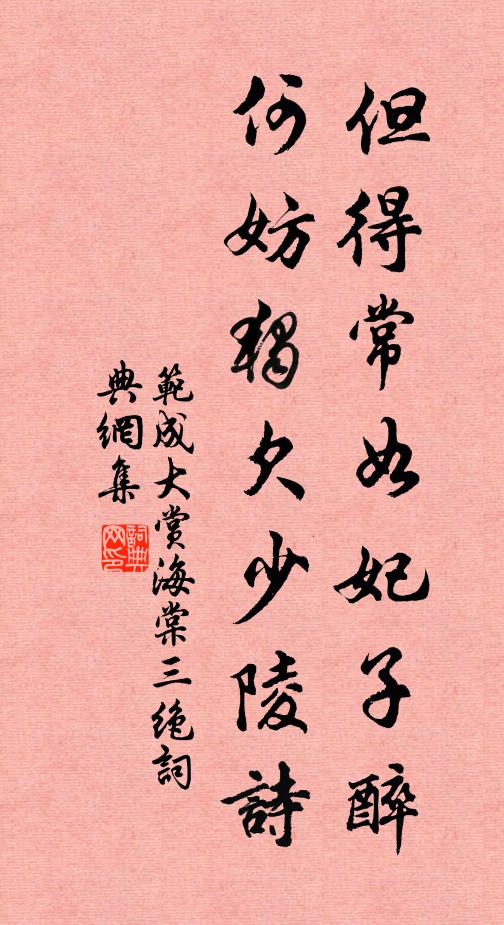 但得常如妃子醉
何妨獨欠少陵詩
範成大賞海棠三絶詞
典網集
詞典网印